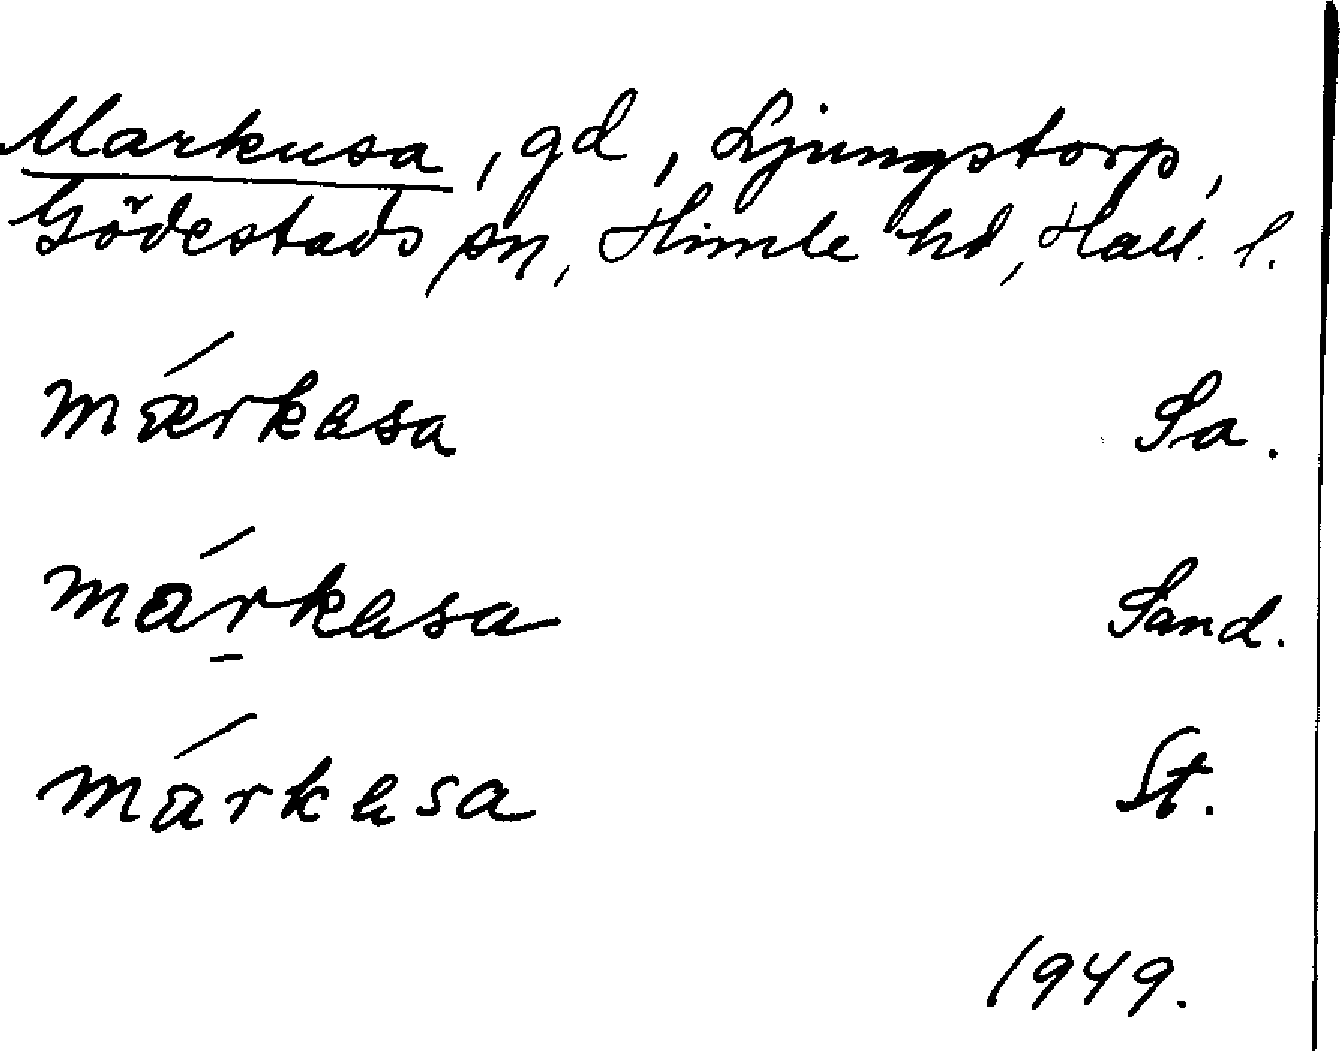 Markusa, gd, Ljungstorp,
Gödestads sn, Himle hd, Hall. l.
mǽrkasa Sa.
márkasa Sand.
márkasa St.
1949.